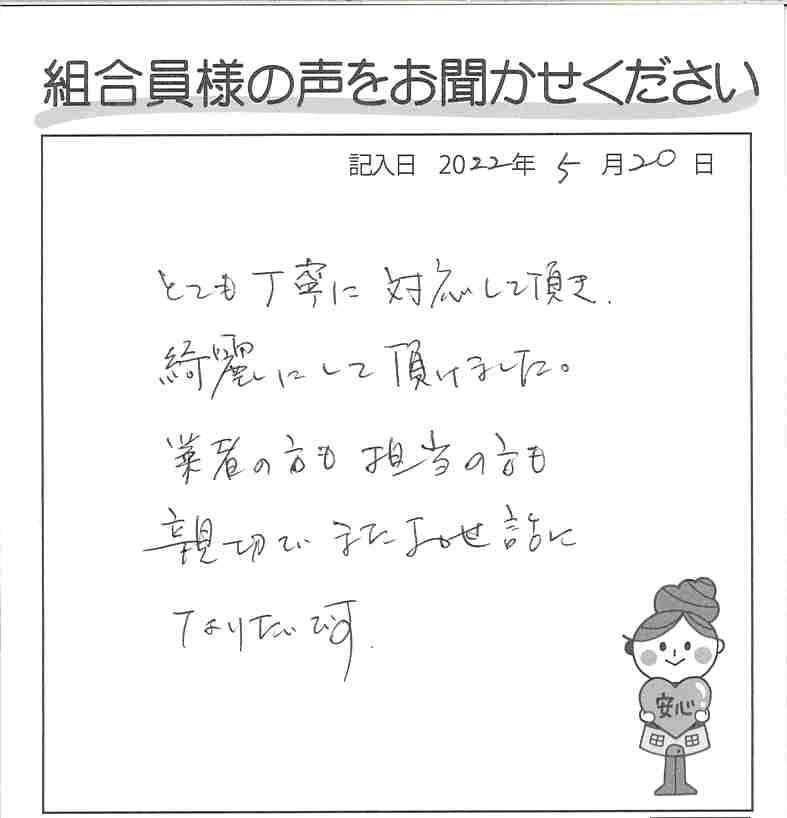 組合員様の声をお聞かせください
記入日 2022年 5月20日
とても丁寧に対応して頂き、
綺麗にして頂けました。
業者の方も担当の方も
親切でまたお世話に
なりたいです。
安心